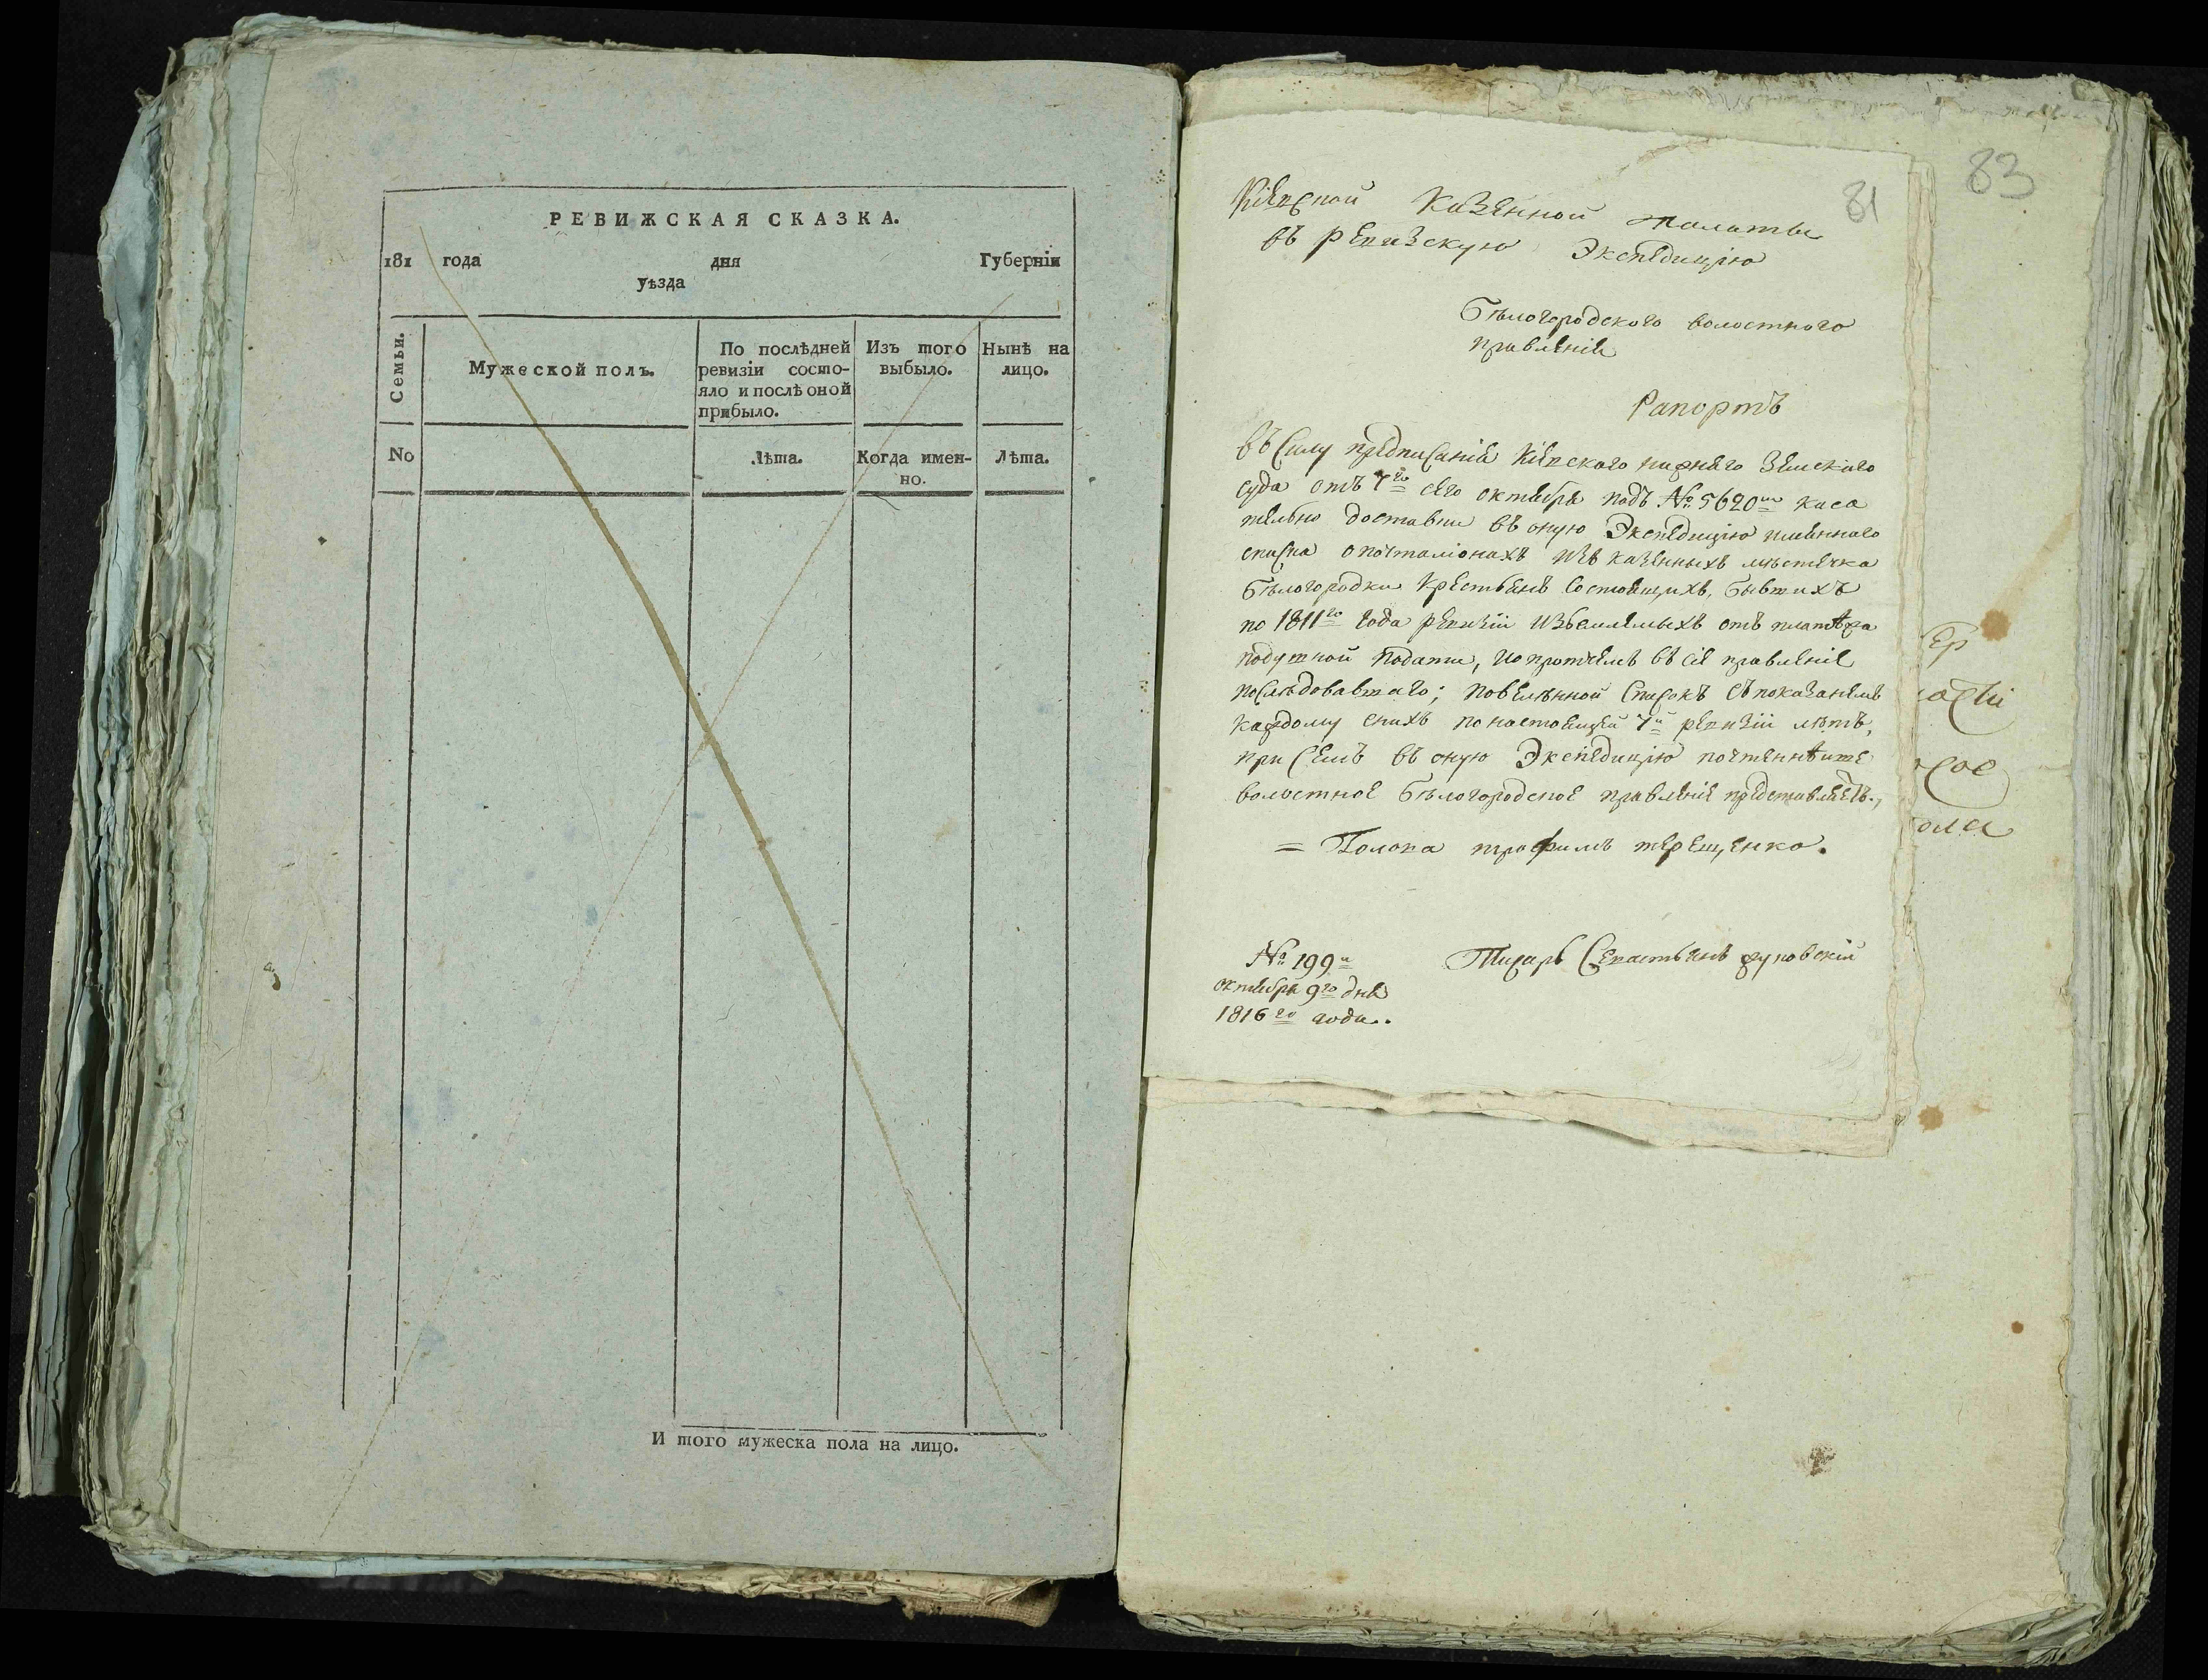 РЕВИЖСКАЯ СКАЗКА.
181 года дня Губерніи
уѣзда
Семьи.
Мужеской полъ.
По послѣдней ревизіи состо-
яло и послѣ оной
прибыло.
Изъ того
выбыло.
Нынѣ на
лицо.
No
Лѣта.
Когда имен-
но.
Лѣта.
И того мужеска пола на лицо.
83
81
Кіевской Казенной палаты
въ ревизскую Экспедицію
Бѣлогородского волостного
правленія
Рапортъ
Въ Силу предписанія Кіевского нижнего Земского
суда отъ 7го сего октября подъ № 5620м каса
тельно доставки въ оную Экспедицію именного
списка о почталіонахъ изъ казенныхъ мѣстечка
Бѣлогородки Крестьянъ состоящихъ, бывшихъ
по 1811го года ревизіи изъемлемыхъ отъ платежа
подушной подати, и о протчемъ въ сіе правленіе
послѣдовавшаго; повеленной Списокъ съ показанемъ
каждому снихъ по настоящей 7й ревизіи лѣтъ,
при Семъ въ оную Экспедицію почтеннѣише
волостное Бѣлогородское правленіе представляетъ.,
= Голова трофимъ терещенко.
№ 199й Писарь Севастьянъ
октября 9го дня
1816го года..
Ер